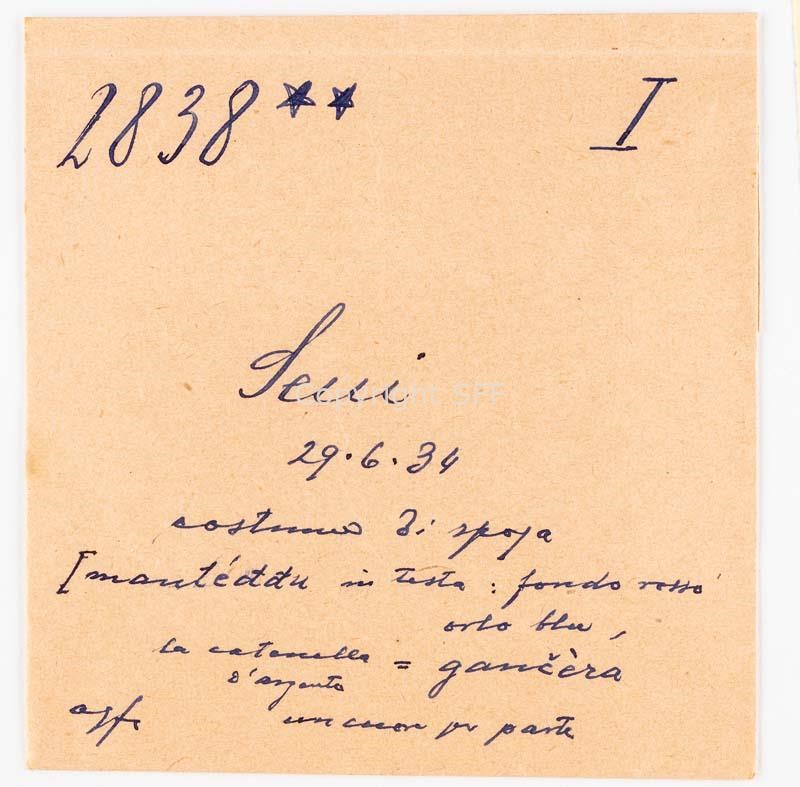 2838 ** I
Seui
29.6.34
costume di sposa
[mantéđđu in testa : fondo rosso
orlo blu,
la catenella = gančèra
d'argento
agfa un cuore per parte
Copyright SFF